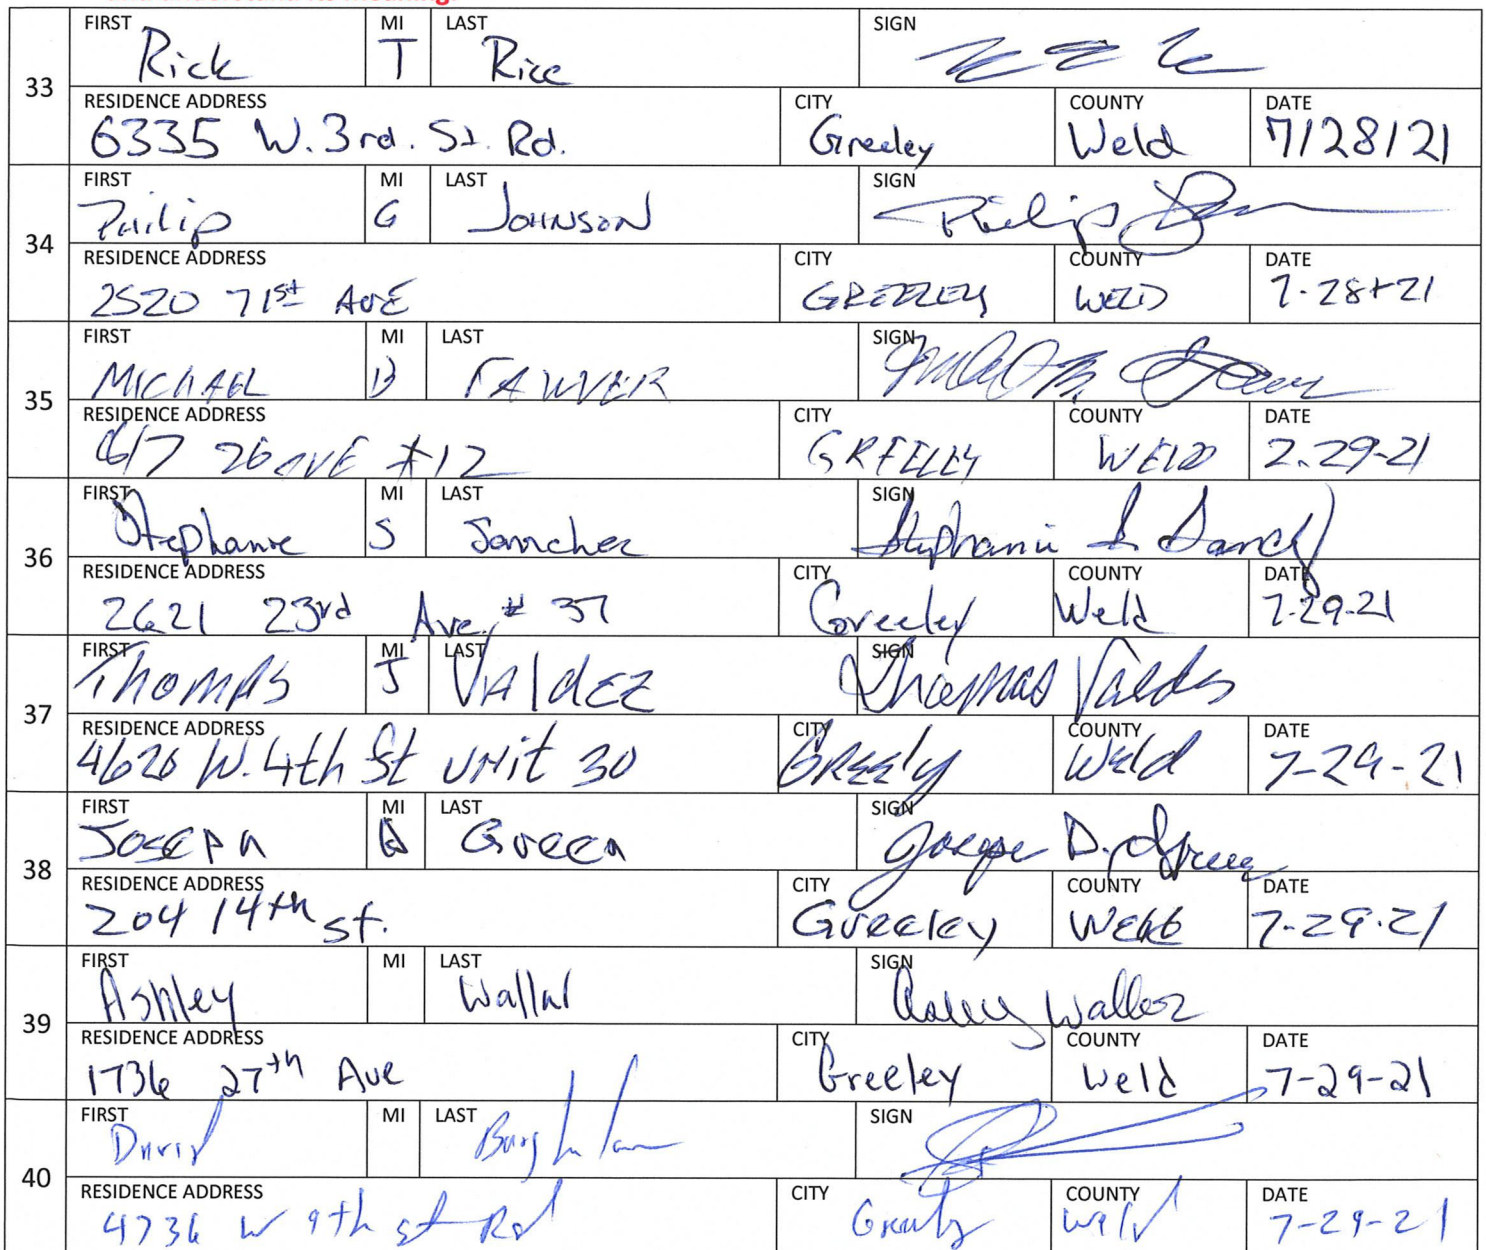 FIRST Rick MI T LAST Rice SIGN
33
RESIDENCE ADDRESS 6335 W. 3rd. St. Rd. CITY Greeley COUNTY Weld DATE 7/28/21
FIRST Philip MI G LAST JOHNSON SIGN Philip
34
RESIDENCE ADDRESS 2520 71st AVE CITY GREELEY COUNTY WELD DATE 7-28-21
FIRST MICHAEL MI B LAST SIGN
35
RESIDENCE ADDRESS 617 26 AVE #12 CITY GREELEY COUNTY WELD DATE 2.29-21
FIRST Stephanie MI S LAST SIGN Stephanie S.
36
RESIDENCE ADDRESS 2621 23rd Ave. # 37 CITY Greeley COUNTY Weld DATE 7-29-21
FIRST Thomas MI J LAST VAldEZ SIGN Thomas Valdez
37
RESIDENCE ADDRESS 4620 W. 4th St UNit 30 CITY GREEly COUNTY Weld DATE 7-29-21
FIRST JOSEPh MI D LAST Green SIGN D. Green
38
RESIDENCE ADDRESS 204 14th St. CITY Greeley COUNTY DATE 7-29-21
FIRST Ashley MI LAST SIGN
39
RESIDENCE ADDRESS 1736 27th Ave CITY Greeley COUNTY Weld DATE 7-29-21
FIRST David MI LAST SIGN
40
RESIDENCE ADDRESS 4736 W 9th St Rd CITY Greeley COUNTY Weld DATE 7-29-21